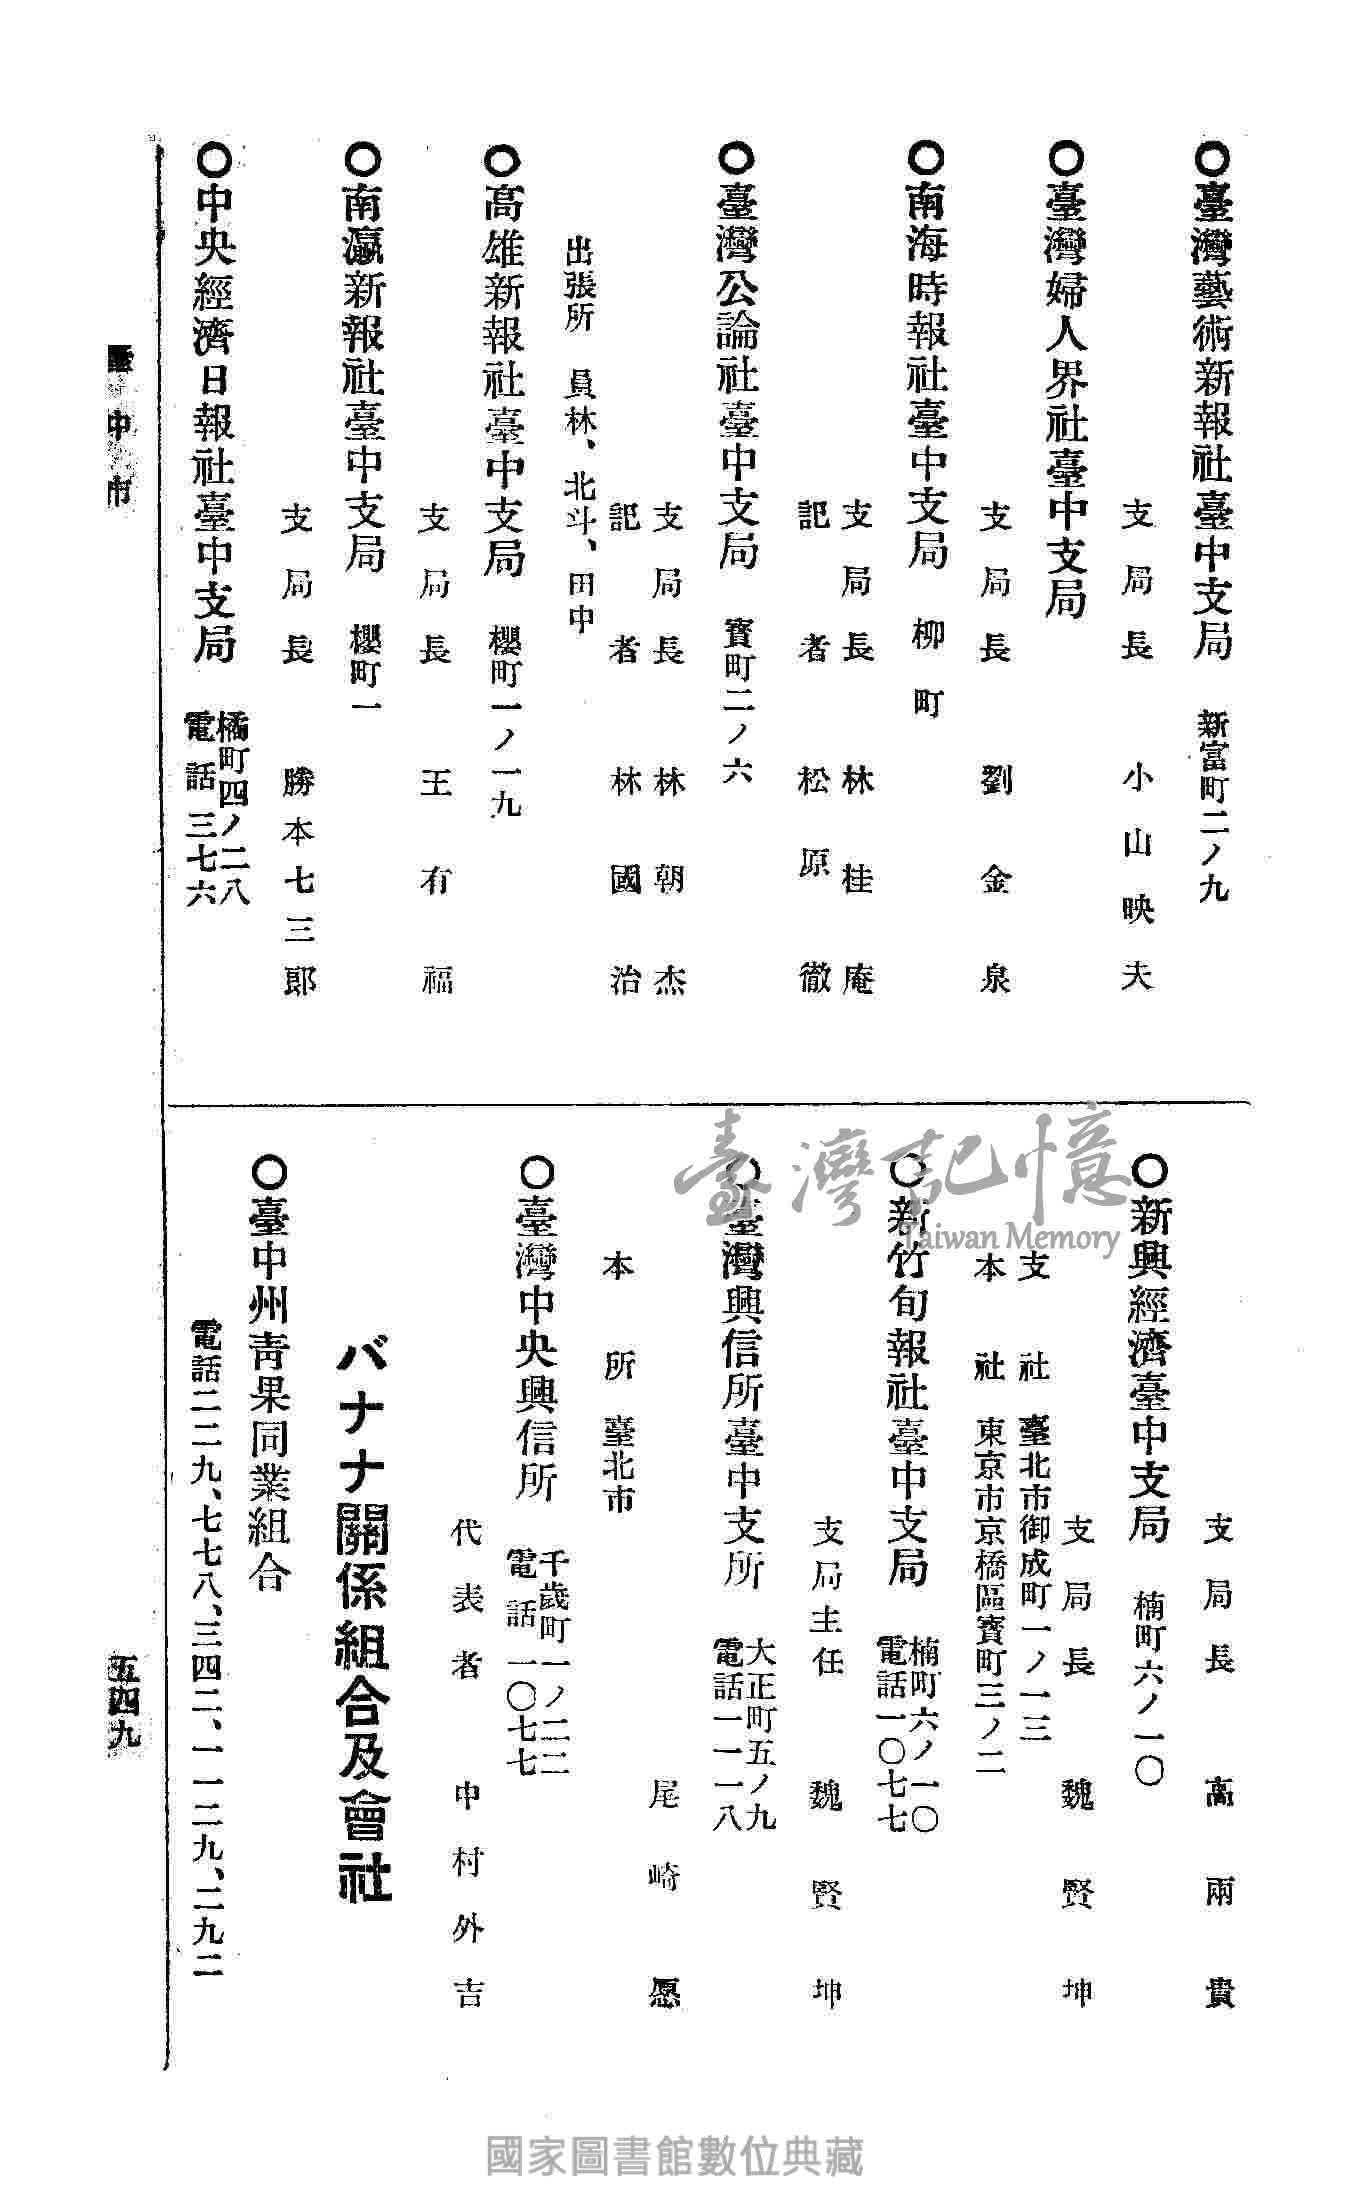 ○臺灣藝術新報社臺中支局 新富町二ノ九
支局長 小山映夫
○臺灣婦人界社臺中支局
支局長 劉金泉
○南海時報社臺中支局 柳町
支局長 林桂庵
記者 松原徹
○臺灣公論社臺中支局 寳町二ノ六
支局長 林朝杰
記者 林國治
出張所 員林、北斗、田中
○高雄新報社臺中支局 櫻町一ノ一九
支局長 王有福
○南瀛新報社臺中支局 櫻町一
支局長 勝本七三郎
○中央經濟日報社臺中支局 橘町四ノ二八
電話 三七六
支局長 高雨貴
○新興經濟臺中支局 楠町六ノ一〇
支局長 魏賢坤
支社 臺北市御成町一ノ一三
本社 東京市京橋區寳町三ノ二
○新竹旬報社臺中支局 楠町六ノ一〇
電話一〇七七
支局主任 魏賢坤
○臺灣興信所臺中支所 大正町五ノ九
電話一一一八
尾崎愿
本所 臺北市
○臺灣中央興信所 千歲町一ノ二二
電話 一〇七七
代表者 中村外吉
バナナ關係組合及會社
○臺中州靑果同業組合
電話二二九、七七八、三四二、一一二九、二九二
臺中市
五四九
臺灣記憶
Taiwan Memory
國家圖書館數位典藏